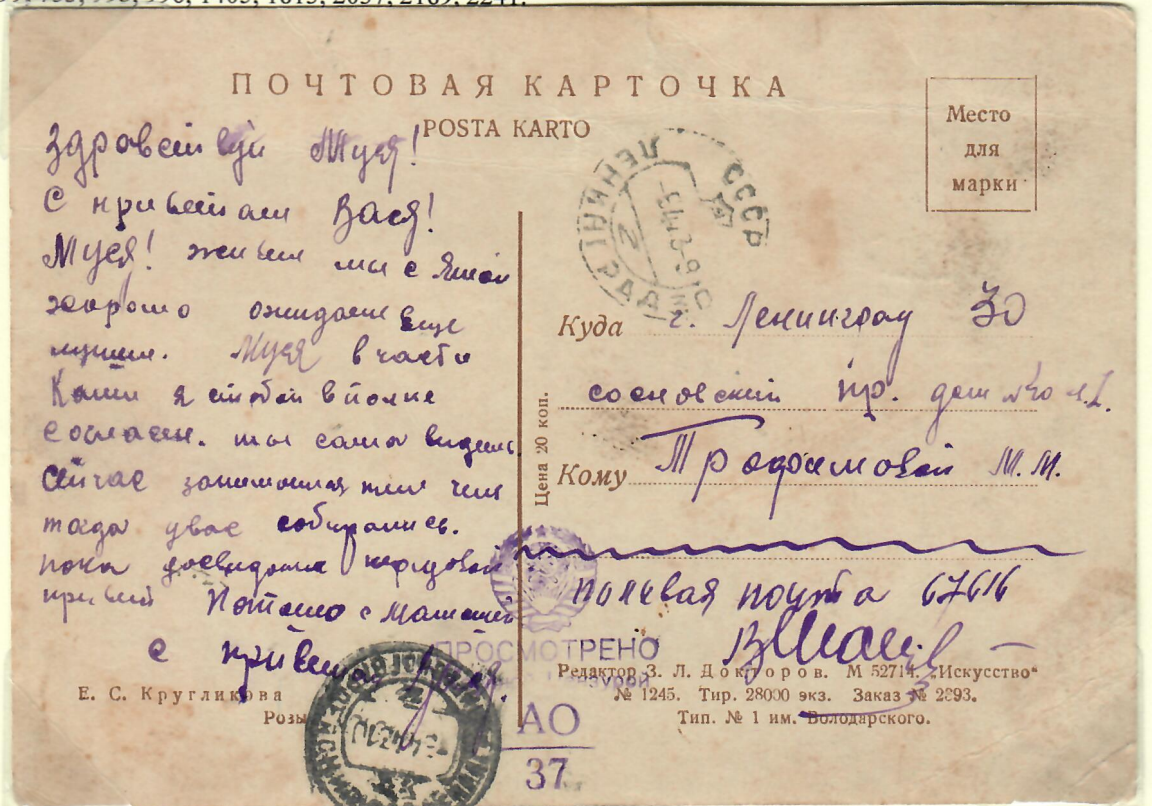 ПОЧТОВАЯ КАРТОЧКА
POSTA KARTO
Место
для
марки
Здравствуй Муся!
С приветом Вася!
Муся! живем мы с Яшей
хорошо ожидаем еще
лучше. Муся в части
Кати я с тобой вполне
согласен. ты сама видишь
сейчас
тогда у вас собирались.
пока досвидания передавай
привет с мамашей
с приветом
СССР
ЛЕНИНГРАД
2
Куда г. Ленинград 30
сосновский пр. дом №
Кому Трофимовой М. М.
Цена 20 коп.
полевая почта 67616
ПРОСМОТРЕНО
АО
37
Е. С. Кругликова
Розы
Редактор З. Л. Докторов. М 52714. „Искусство“
№ 1245. Тир. 28000 экз. Заказ № 2893.
Тип. № 1 им. Володарского.